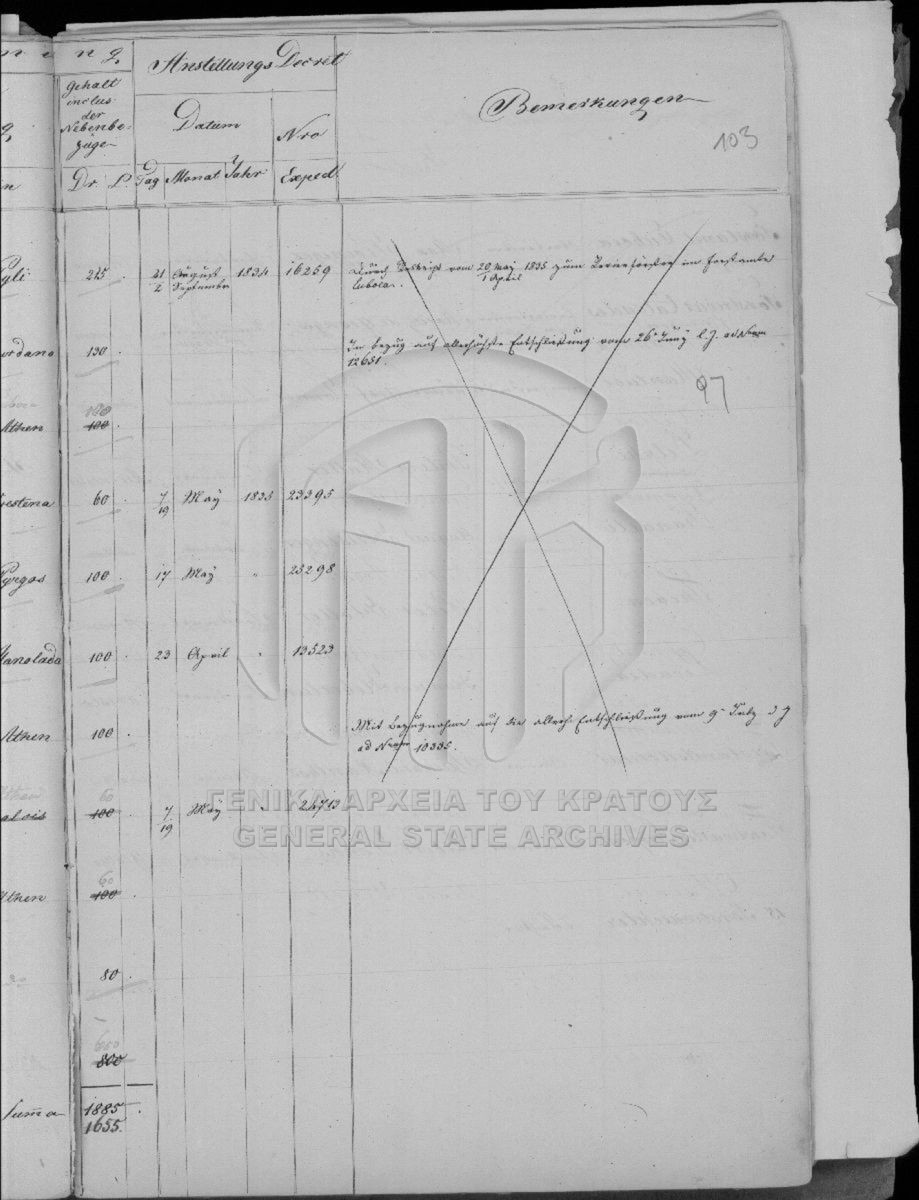 n g
Anstellungs Decret
Bemerkungen
Gehalt
inclus
der
Nebenbe-
züge
Datum
Nro
103
Dr. L.
Tag Monat Jahr
Exped
225 . 21 August 1834 16259 Durch Rescript vom 20 May 1835 zum Revierförster im Forstamte
2 Septembre 1 April
130 . In bezug auf allerhöchste Entschließung vom 26 Juny l. J. ad Num
12651.
97
100
Athen 100
60 . 7 May 1835 23395
19
Pyrgos 100 . 17 May " 23298
Manolada 100 . 23 April " 13523
Athen 100 . Mit Bezugnahme auf die allerh. Entschließung vom 9 July d J
ad Num 10335.
60
100 . 7 May " 24713
19
ΓΕΝΙΚΑ ΑΡΧΕΙΑ ΤΟΥ ΚΡΑΤΟΥΣ
GENERAL STATE ARCHIVES
60
Athen 100
do 80 .
650
800
Summa 1885 .
1655.